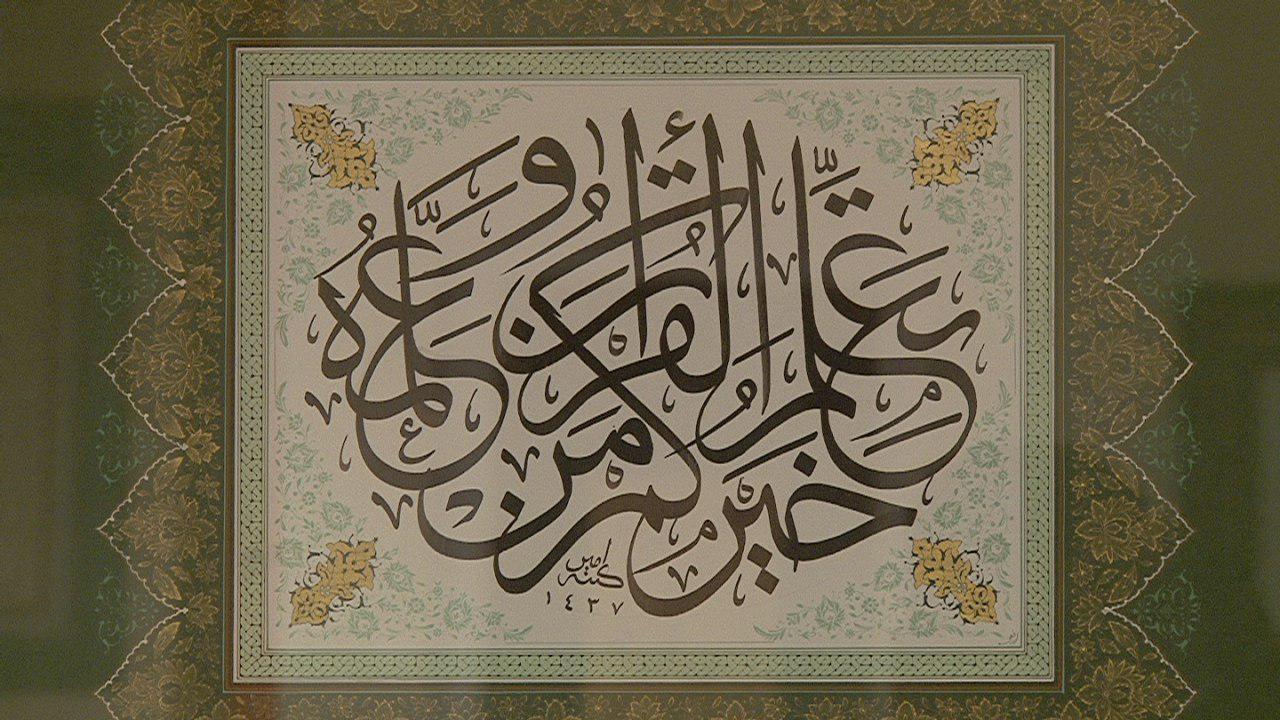 خيركم من تعلم القرآن وعلمه
كتبه امين
١٤٣٧